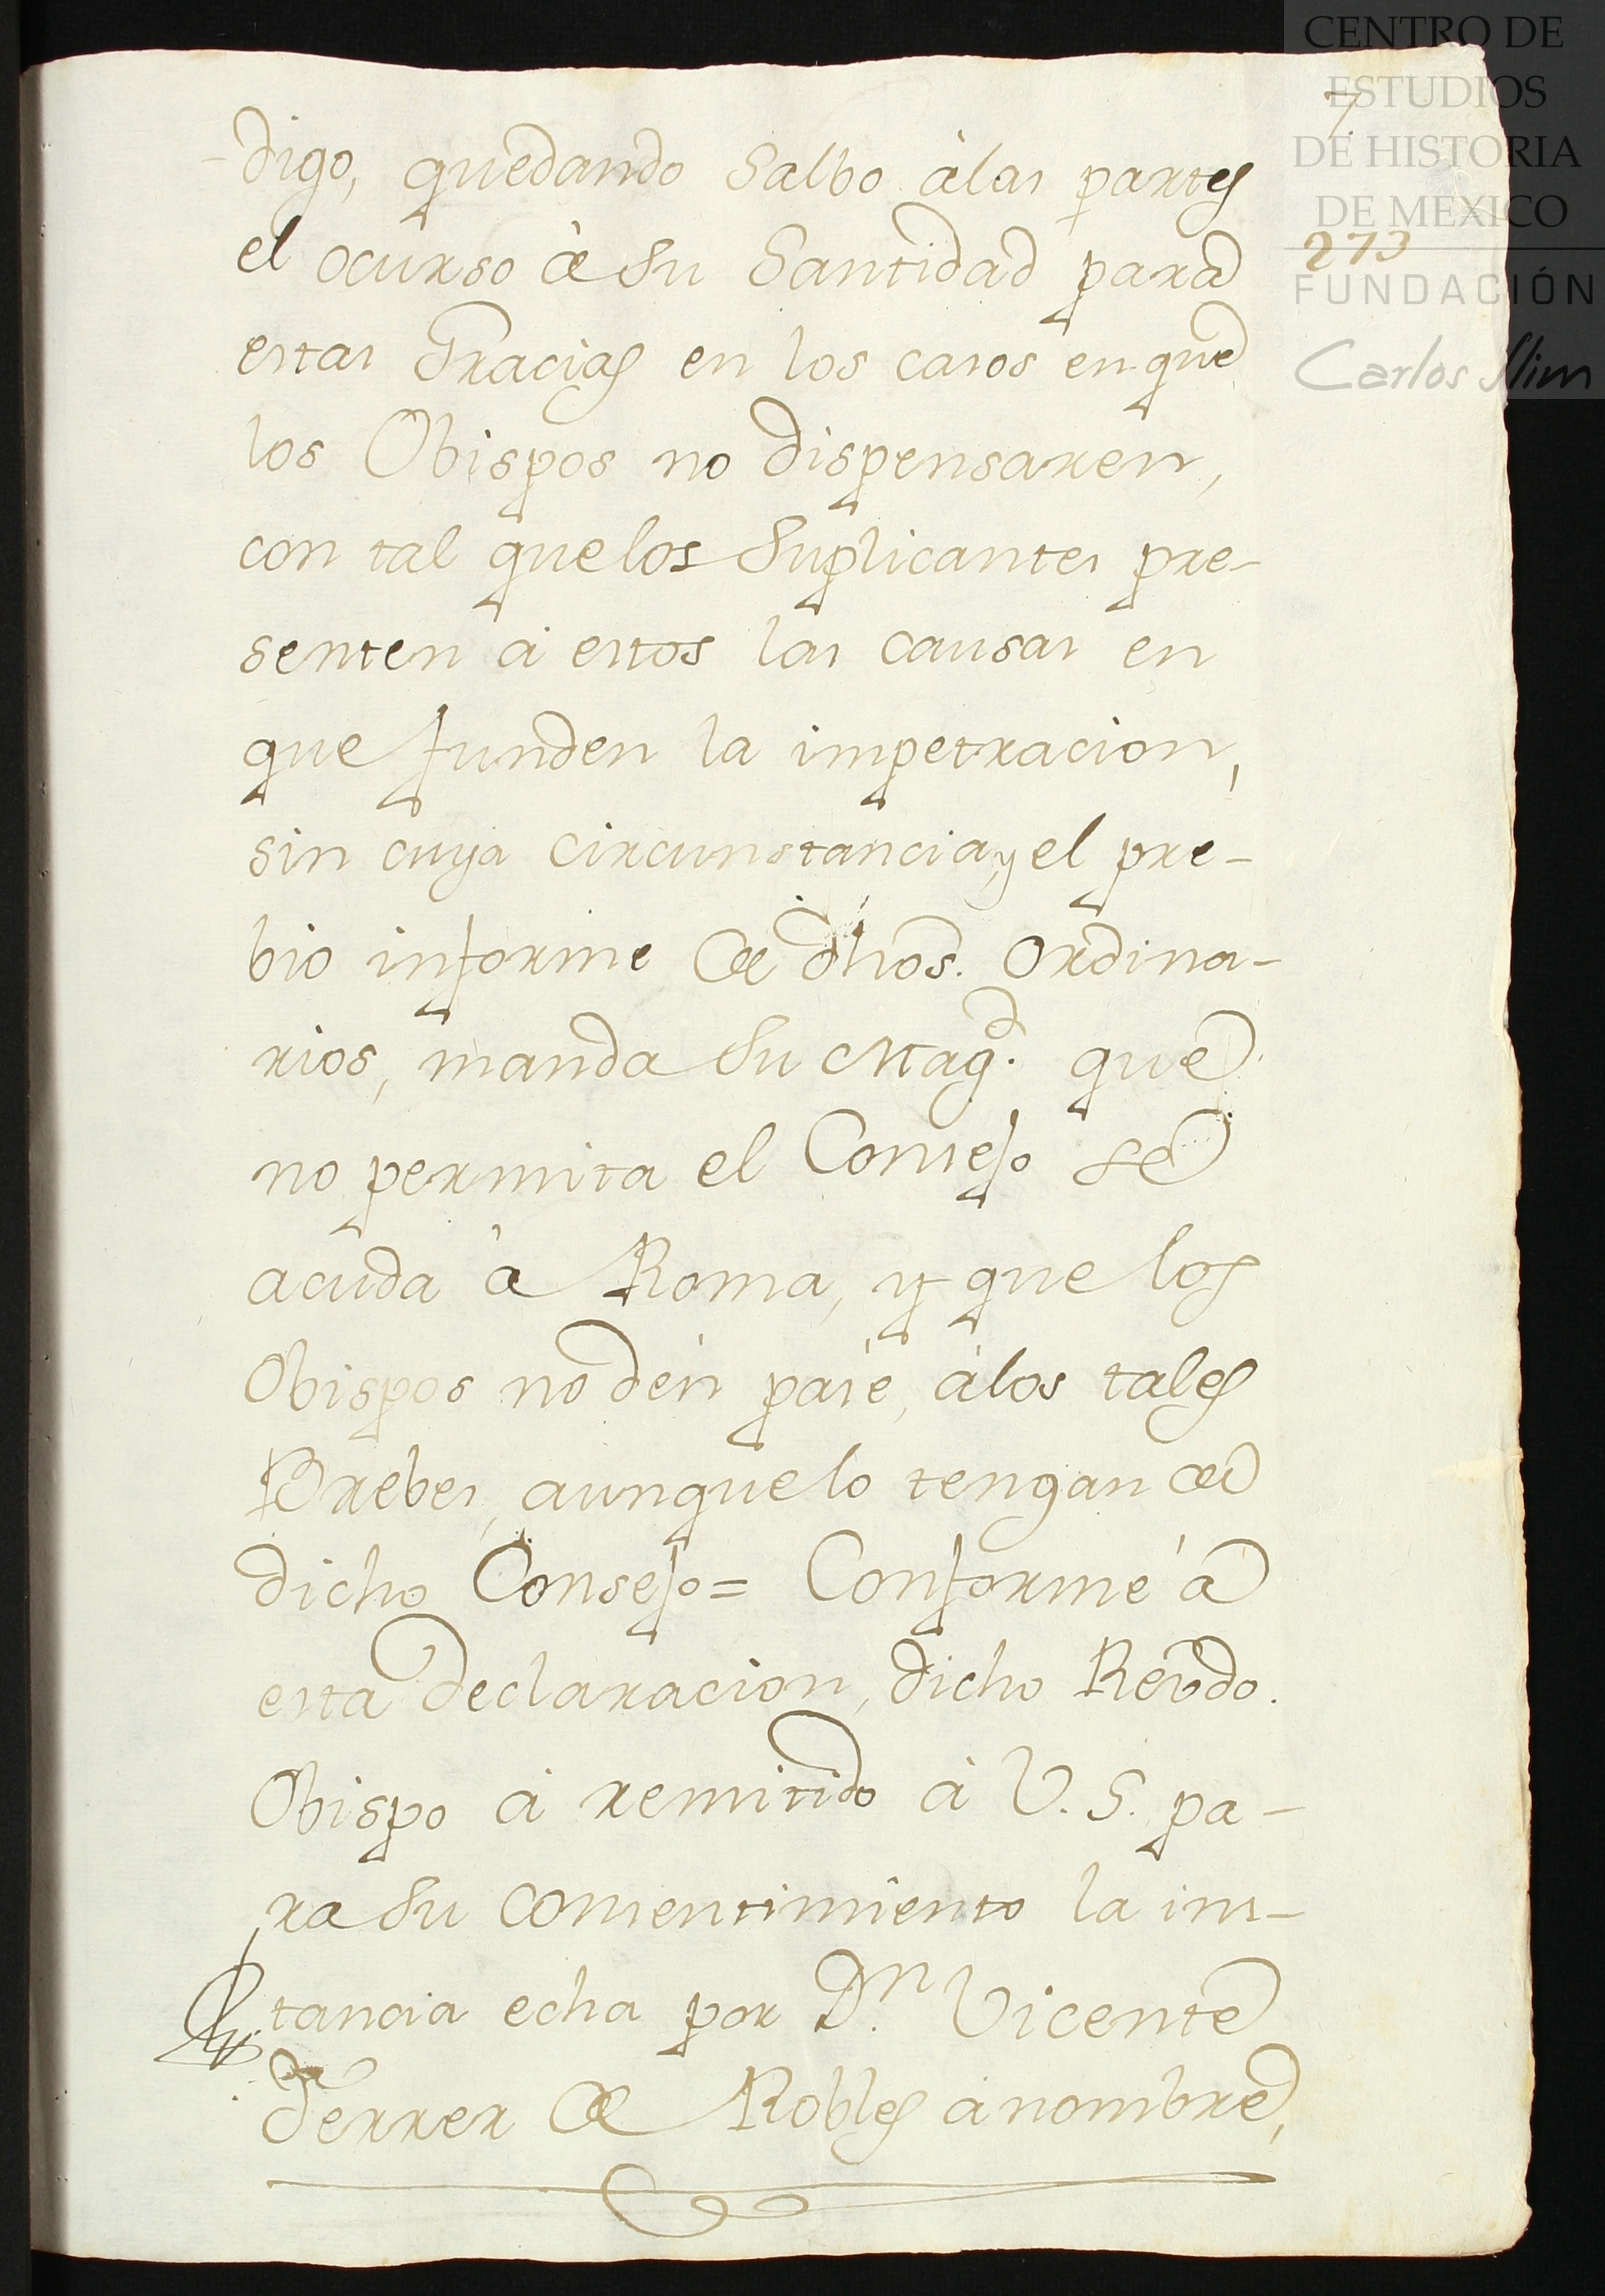 CENTRO DE
ESTUDIOS
DE HISTORIA
DE MEXICO
FUNDACIÓN
Carlos Slim
7.
273
-digo, quedando Salbo àlas partes
el ocurso à Su Santidad para
estas Gracias en los casos en que
los Obispos no dispensaren,
con tal que los Suplicantes pre-
senten à estos las causas en
que funden la impetracion,
sin cuya circunstancia, y el pre-
bio informe de dhos. Ordina-
rios, manda Su Magd. que
no permita el Consejo se
acuda à Roma, y que los
Obispos no dén pase, àlos tales
Brebes, aunque lo tengan de
dicho Consejo = Conforme à
esta declaracion, dicho Revdo.
Obispo à remitido à V. S. pa-
ra Su consentimiento la ins-
tancia echa por Dn. Vicente
Ferrer de Robles à nombre,